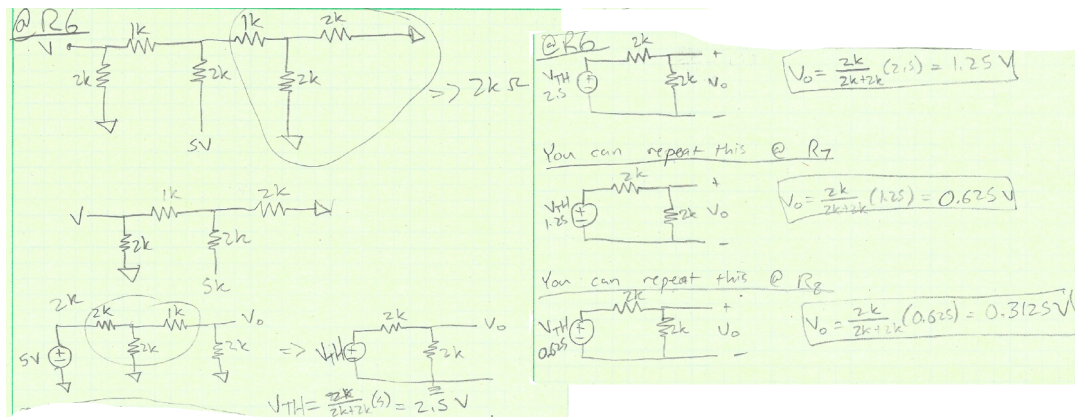 @R6
1k 1k 2k
V
2k 2k 2k => 2kΩ
5V
1k 2k
V
2k 2k
5k
2k
2k 1k Vo 2k Vo
5V 2k 2k => VTH 2k
VTH = 2k/2k+2k (5) = 2.5 V
@R6
2k +
VTH 2.5 2k Vo
-
Vo = 2k/2k+2k (2.5) = 1.25 V
You can repeat this @ R7
2k +
VTH 1.25 2k Vo
-
Vo = 2k/2k+2k (1.25) = 0.625 V
You can repeat this @ R8
2k +
VTH 0.625 2k Vo
-
Vo = 2k/2k+2k (0.625) = 0.3125V